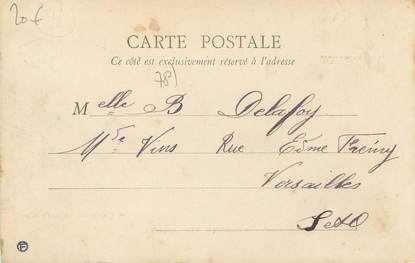 20 €
CARTE POSTALE
Ce côté est exclusivement réservé à l'adresse
78)
Melle B Delafoy
Mde Vins Rue Edme Frémy
Versailles
S et O